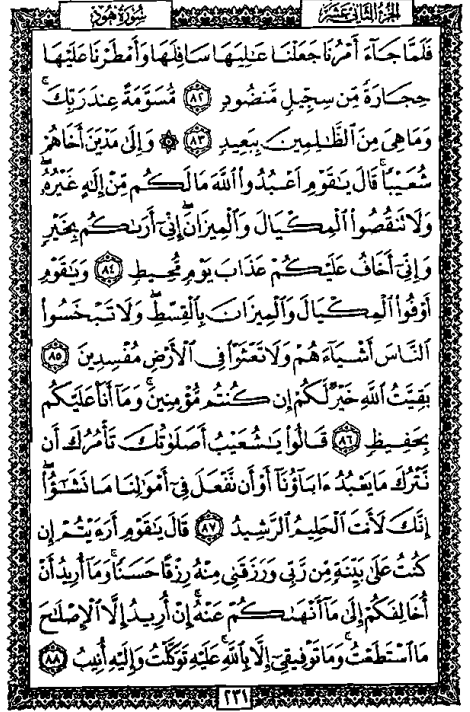 سُورَةُ هُودٍ
الجُزْءُ الثَّانِي عَشَر
فَلَمَّا جَآءَ أَمْرُنَا جَعَلْنَا عَٰلِيَهَا سَافِلَهَا وَأَمْطَرْنَا عَلَيْهَا
حِجَارَةً مِّن سِجِّيلٍ مَّنضُودٍ ٨٢ مُّسَوَّمَةً عِندَ رَبِّكَۖ
وَمَا هِىَ مِنَ ٱلظَّٰلِمِينَ بِبَعِيدٍ ٨٣ ۞ وَإِلَىٰ مَدْيَنَ أَخَاهُمْ
شُعَيْبًاۚ قَالَ يَٰقَوْمِ ٱعْبُدُوا۟ ٱللَّهَ مَا لَكُم مِّنْ إِلَٰهٍ غَيْرُهُۥۖ
وَلَا تَنقُصُوا۟ ٱلْمِكْيَالَ وَٱلْمِيزَانَۖ إِنِّىٓ أَرَىٰكُم بِخَيْرٍ
وَإِنِّىٓ أَخَافُ عَلَيْكُمْ عَذَابَ يَوْمٍ مُّحِيطٍ ٨٤ وَيَٰقَوْمِ
أَوْفُوا۟ ٱلْمِكْيَالَ وَٱلْمِيزَانَ بِٱلْقِسْطِۖ وَلَا تَبْخَسُوا۟
ٱلنَّاسَ أَشْيَآءَهُمْ وَلَا تَعْثَوْا۟ فِى ٱلْأَرْضِ مُفْسِدِينَ ٨٥
بَقِيَّتُ ٱللَّهِ خَيْرٌ لَّكُمْ إِن كُنتُم مُّؤْمِنِينَۚ وَمَآ أَنَا۠ عَلَيْكُم
بِحَفِيظٍ ٨٦ قَالُوا۟ يَٰشُعَيْبُ أَصَلَوٰتُكَ تَأْمُرُكَ أَن
نَّتْرُكَ مَا يَعْبُدُ ءَابَآؤُنَآ أَوْ أَن نَّفْعَلَ فِىٓ أَمْوَٰلِنَا مَا نَشَٰٓؤُا۟ۖ
إِنَّكَ لَأَنتَ ٱلْحَلِيمُ ٱلرَّشِيدُ ٨٧ قَالَ يَٰقَوْمِ أَرَءَيْتُمْ إِن
كُنتُ عَلَىٰ بَيِّنَةٍ مِّن رَّبِّى وَرَزَقَنِى مِنْهُ رِزْقًا حَسَنًاۚ وَمَآ أُرِيدُ أَنْ
أُخَالِفَكُمْ إِلَىٰ مَآ أَنْهَىٰكُمْ عَنْهُۚ إِنْ أُرِيدُ إِلَّا ٱلْإِصْلَٰحَ
مَا ٱسْتَطَعْتُۚ وَمَا تَوْفِيقِىٓ إِلَّا بِٱللَّهِۚ عَلَيْهِ تَوَكَّلْتُ وَإِلَيْهِ أُنِيبُ ٨٨
٢٣١